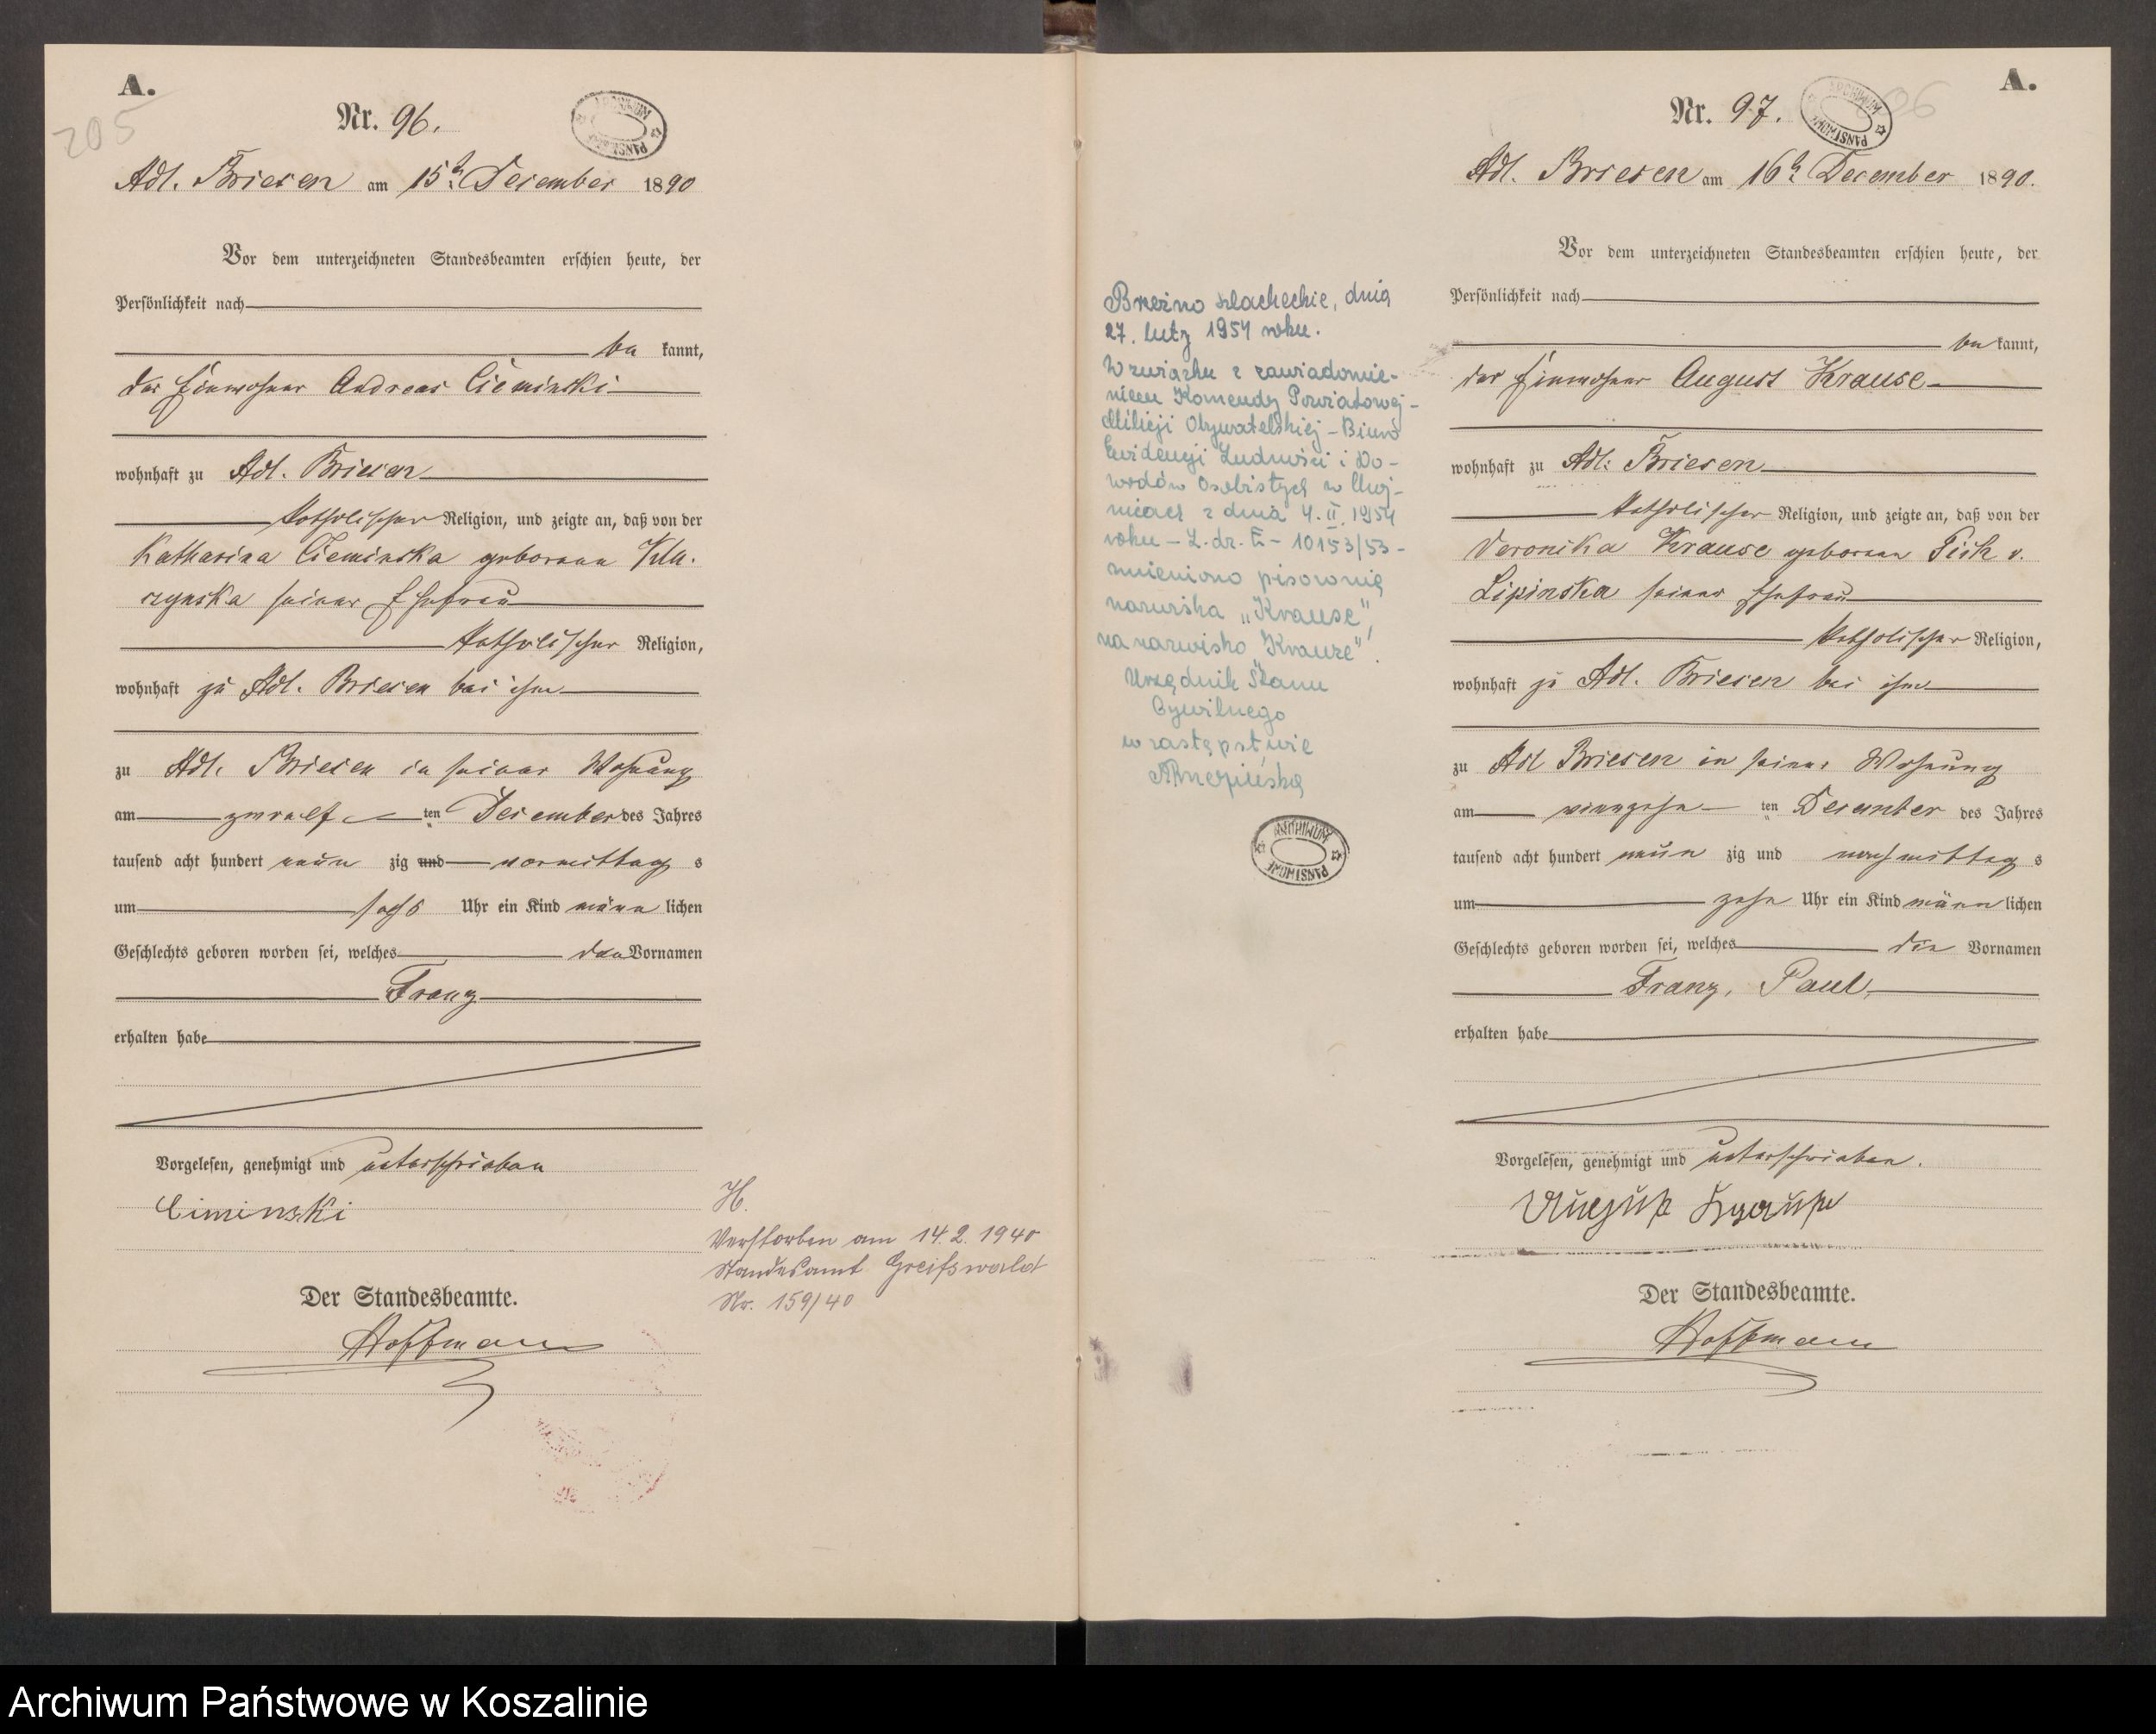 A.
205
Nr. 96.
ARCHIWUM PAŃSTWOWE
Adl. Briesen am 15ten December 1890
Vor dem unterzeichneten Standesbeamten erschien heute, der
Persönlichkeit nach
be kannt,
der Einwohner Andreas Cieminski
wohnhaft zu Adl. Briesen
katholischer Religion, und zeigte an, daß von der
Katharina Cieminska geborene
czynska seiner Ehefrau
katholischer Religion,
wohnhaft zu Adl. Briesen bei ihm
zu Adl. Briesen in seiner Wohnung
am zwoelf ten December des Jahres
tausend acht hundert neun zig und vormittag s
um sechs Uhr ein Kind männ lichen
Geschlechts geboren worden sei, welches den Vornamen
Franz
erhalten habe
Vorgelesen, genehmigt und unterschrieben
Ciminski
Der Standesbeamte.
Hoffmann
H.
Verstorben am 14.2.1940
Standesamt Greifswald
Nr. 159/40
A.
Nr. 97.
ARCHIWUM PAŃSTWOWE
Adl. Briesen am 16ten December 1890.
Vor dem unterzeichneten Standesbeamten erschien heute, der
Persönlichkeit nach
be kannt,
der Einwohner August Krause
wohnhaft zu Adl. Briesen
katholischer Religion, und zeigte an, daß von der
Veronika Krause geborene v.
Lipinska seiner Ehefrau
katholischer Religion,
wohnhaft zu Adl. Briesen bei ihm
zu Adl Briesen in seiner Wohnung
am vierzehn ten December des Jahres
tausend acht hundert neun zig und nachmittag s
um zehn Uhr ein Kind männ lichen
Geschlechts geboren worden sei, welches die Vornamen
Franz, Paul,
erhalten habe
Vorgelesen, genehmigt und unterschrieben.
August Krause
Der Standesbeamte.
Hoffmann
Brzeźno szlacheckie, dnia
27. lutz 1954 roku.
W związku z zawiadomie-
niem Komendy Powiatowej-
Milicji Obywatelskiej - Biuro
Ewidencji Ludności i Do-
wodów Osobistych w Choj-
nicach z dnia 4.II.1954
roku - L.dz. E - 10153/53 -
zmieniono pisownię
nazwiska „Krause",
na nazwisko „Krauze".
Urzędnik Stanu
Cywilnego
w zastępstwie
ARCHIWUM PAŃSTWOWE
Archiwum Państwowe w Koszalinie